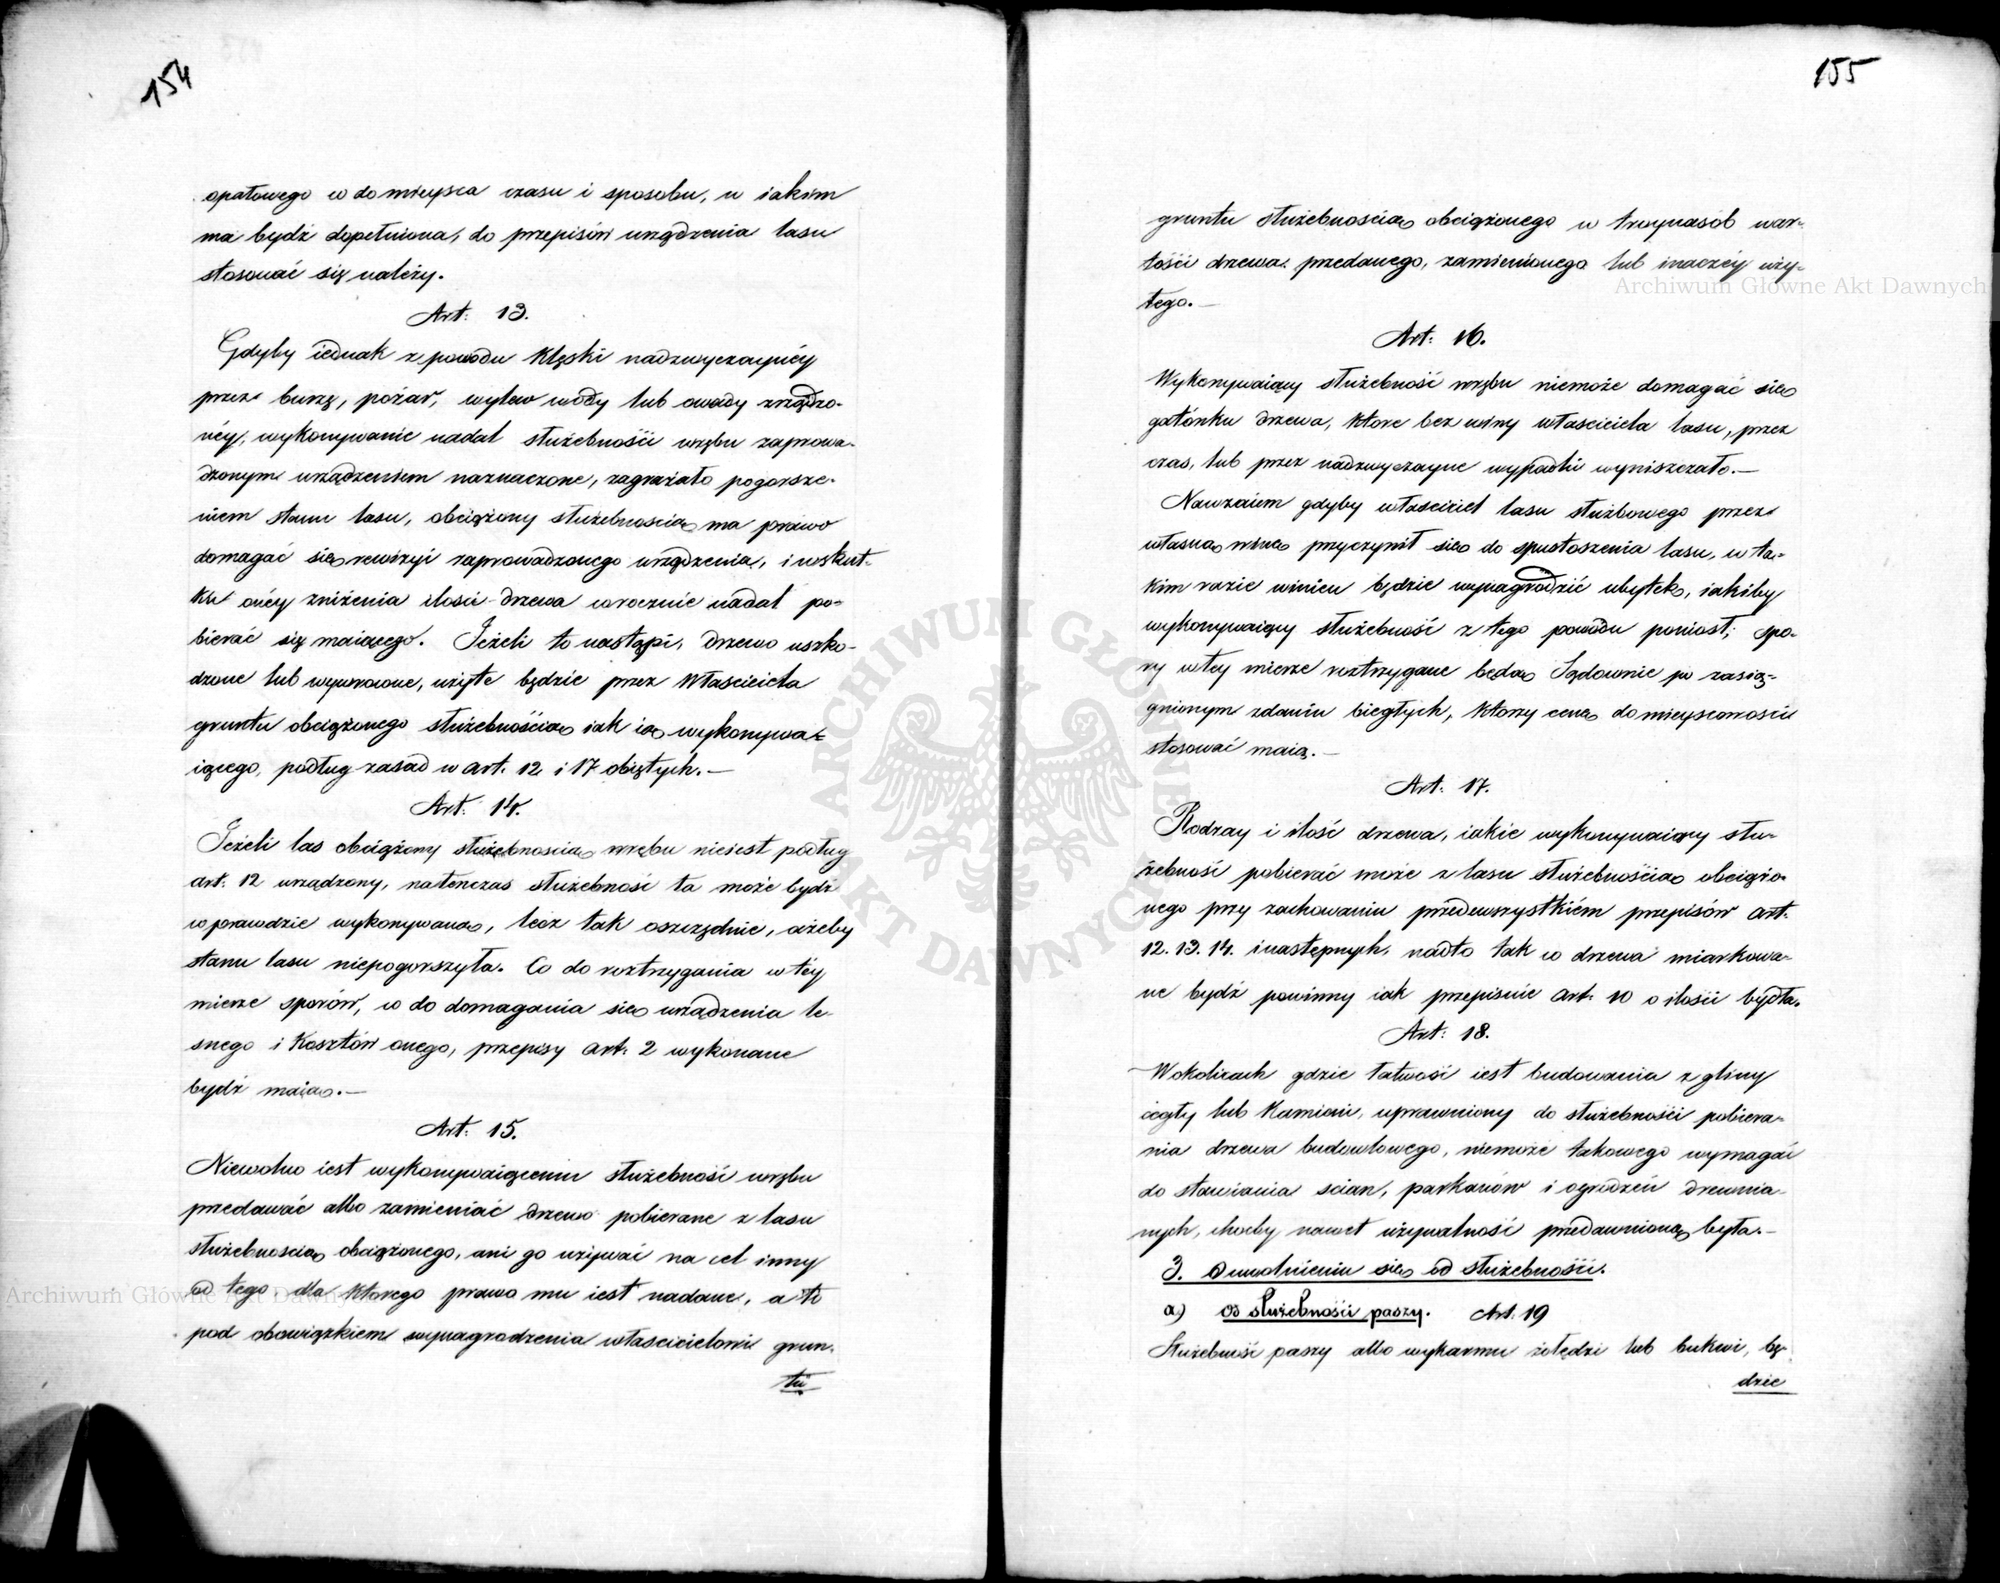 154
opałowego co do mieysca czasu i sposobu, w iakim
ma bydź dopełniona, do przepisów urządzenia lasu
stosować się należy.
Art: 13.
Gdyby iednak z powodu klęski nadzwyczaynéy
przez burzę, pożar, wylew wody lub owady zrządzo-
néy, wykonywanie nadal służebności wrębu zaprowa-
dzonym urządzeniem naznaczone, zagrażało pogorsze-
niem stanu lasu, obciążony służebnością ma prawo
domagać się rewizyi zaprowadzonego urządzenia, i wskut-
ku onéy zniżenia ilości drzewa corocznie nadal po-
bierać się maiącego. Jeżeli to nastąpi, drzewo uszko-
dzone lub wywrócone, użyte będzie przez Właściciela
gruntu obciążonego służebnością iak ią wykonywa-
iącego, podług zasad w art. 12 i 17 obiętych.—
Art: 14.
Jeżeli las obciążony służebnością wrębu nieiest podług
art: 12 urządzony, natenczas służebność ta może bydź
wprawdzie wykonywaną, lecz tak oszczędnie, ażeby
stanu lasu niepogorszyła. Co do roztrzygania w téy
mierze sporów, co do domagania się urządzenia le-
snego i kosztów onego, przepisy art: 2 wykonane
bydź maią.—
Art: 15.
Niewolno iest wykonywaiącemu służebność wrębu
przedawać albo zamieniać drzewo pobierane z lasu
służebnością obciążonego, ani go używać na cel inny
od tego dla którego prawo mu iest nadane, a to
pod obowiązkiem wynagrodzenia właścicielowi grun-
tu
155
gruntu służebnością obciążonego w troynasób war-
tości drzewa przedanego, zamienionego lub inaczéy uży-
tego.—
Archiwum Główne Akt Dawnych
Art: 16.
Wykonywaiący służebność wrębu niemoże domagać się
gatónku drzewa, które bez winy właściciela lasu, przez
czas, lub przez nadzwyczayne wypadki wyniszczało.—
Nawzaiem gdyby właściciel lasu służbowego przez
własną winę przyczynił się do spustoszenia lasu, w ta-
kim razie winien będzie wynagrodzić ubytek, iakiby
wykonywaiący służebność z tego powodu poniosł; spo-
ry w tey mierze roztrzygane będą Sądownie po zasią-
gnionym zdaniu biegłych, którzy cenę do mieyscowości
stosować maią.—
Art: 17.
Rodzay i ilość drzewa, iakie wykonywaiący słu-
żebność pobierać może z lasu służebnością obciążo-
nego przy zachowaniu przedewszystkiém przepisów art:
12. 13. 14. i następnych, nadto tak co drzewa miarkowa-
ne bydź powinny iak przepisuie art: 10 o ilości bydła.
Art: 18.
W okolicach gdzie łatwość iest budowania z gliny
cegły lub kamieni, uprawniony do służebności pobiera-
nia drzewa budowlowego, niemoże takowego wymagać
do stawiania ścian, parkanów i ogrodzeń drewnia-
nych, choćby nawet używalność przedawnioną była.—
3. O uwolnieniu się od służebności.
a) od służebności paszy. Art: 19
Służebność paszy albo wykarmu żołędzi lub bukwi, bę-
dzie
ARCHIWUM GŁÓWNE AKT DAWNYCH
Archiwum Główne Akt Dawnych